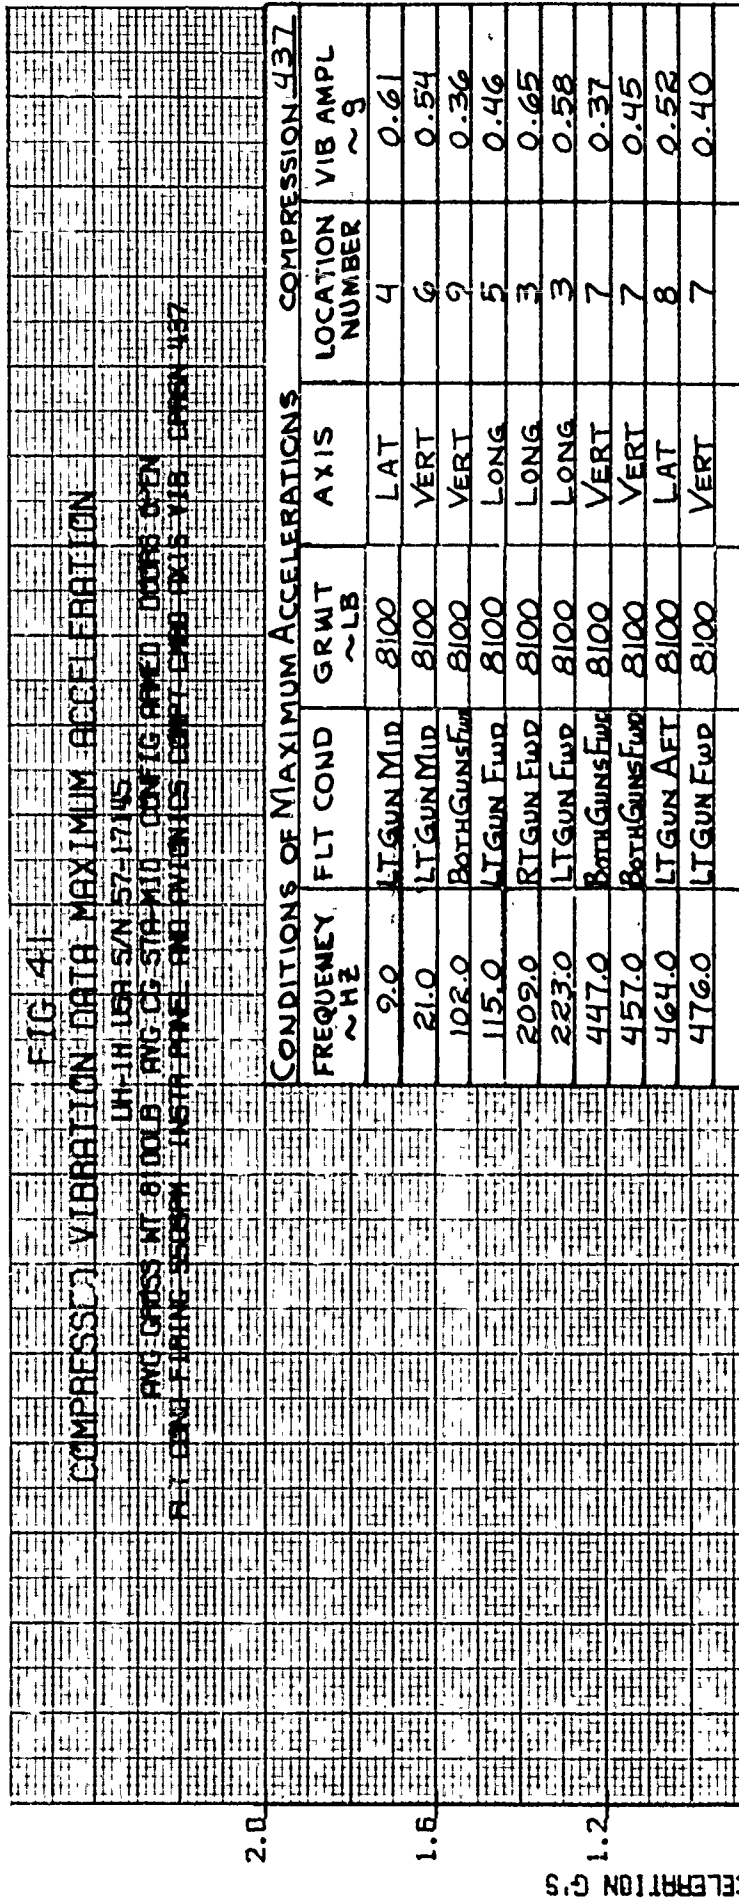 FIG 41
COMPRESSED VIBRATION DATA MAXIMUM ACCELERATION
UH-1H USA S/N 57-17145
AVG GROSS WT 8100LB AVG CG STA MID CONFIG ARMED DOORS OPEN
FLT COND FIRING INSTR PANEL AND AVIONICS COMPT AXIS VIB CPRSN 437
CONDITIONS OF MAXIMUM ACCELERATIONS COMPRESSION 437
FREQUENEY ~HZ FLT COND GRWT ~LB AXIS LOCATION NUMBER VIB AMPL ~g
9.0 LT GUN MID 8100 LAT 4 0.61
21.0 LT GUN MID 8100 VERT 6 0.54
102.0 BOTH GUNS FWD 8100 VERT 9 0.36
115.0 LT GUN FWD 8100 LONG 5 0.46
209.0 RT GUN FWD 8100 LONG 3 0.65
223.0 LT GUN FWD 8100 LONG 3 0.58
447.0 BOTH GUNS FWD 8100 VERT 7 0.37
457.0 BOTH GUNS FWD 8100 VERT 7 0.45
464.0 LT GUN AFT 8100 LAT 8 0.52
476.0 LT GUN FWD 8100 VERT 7 0.40
2.0
1.6
1.2
CELERATION G'S